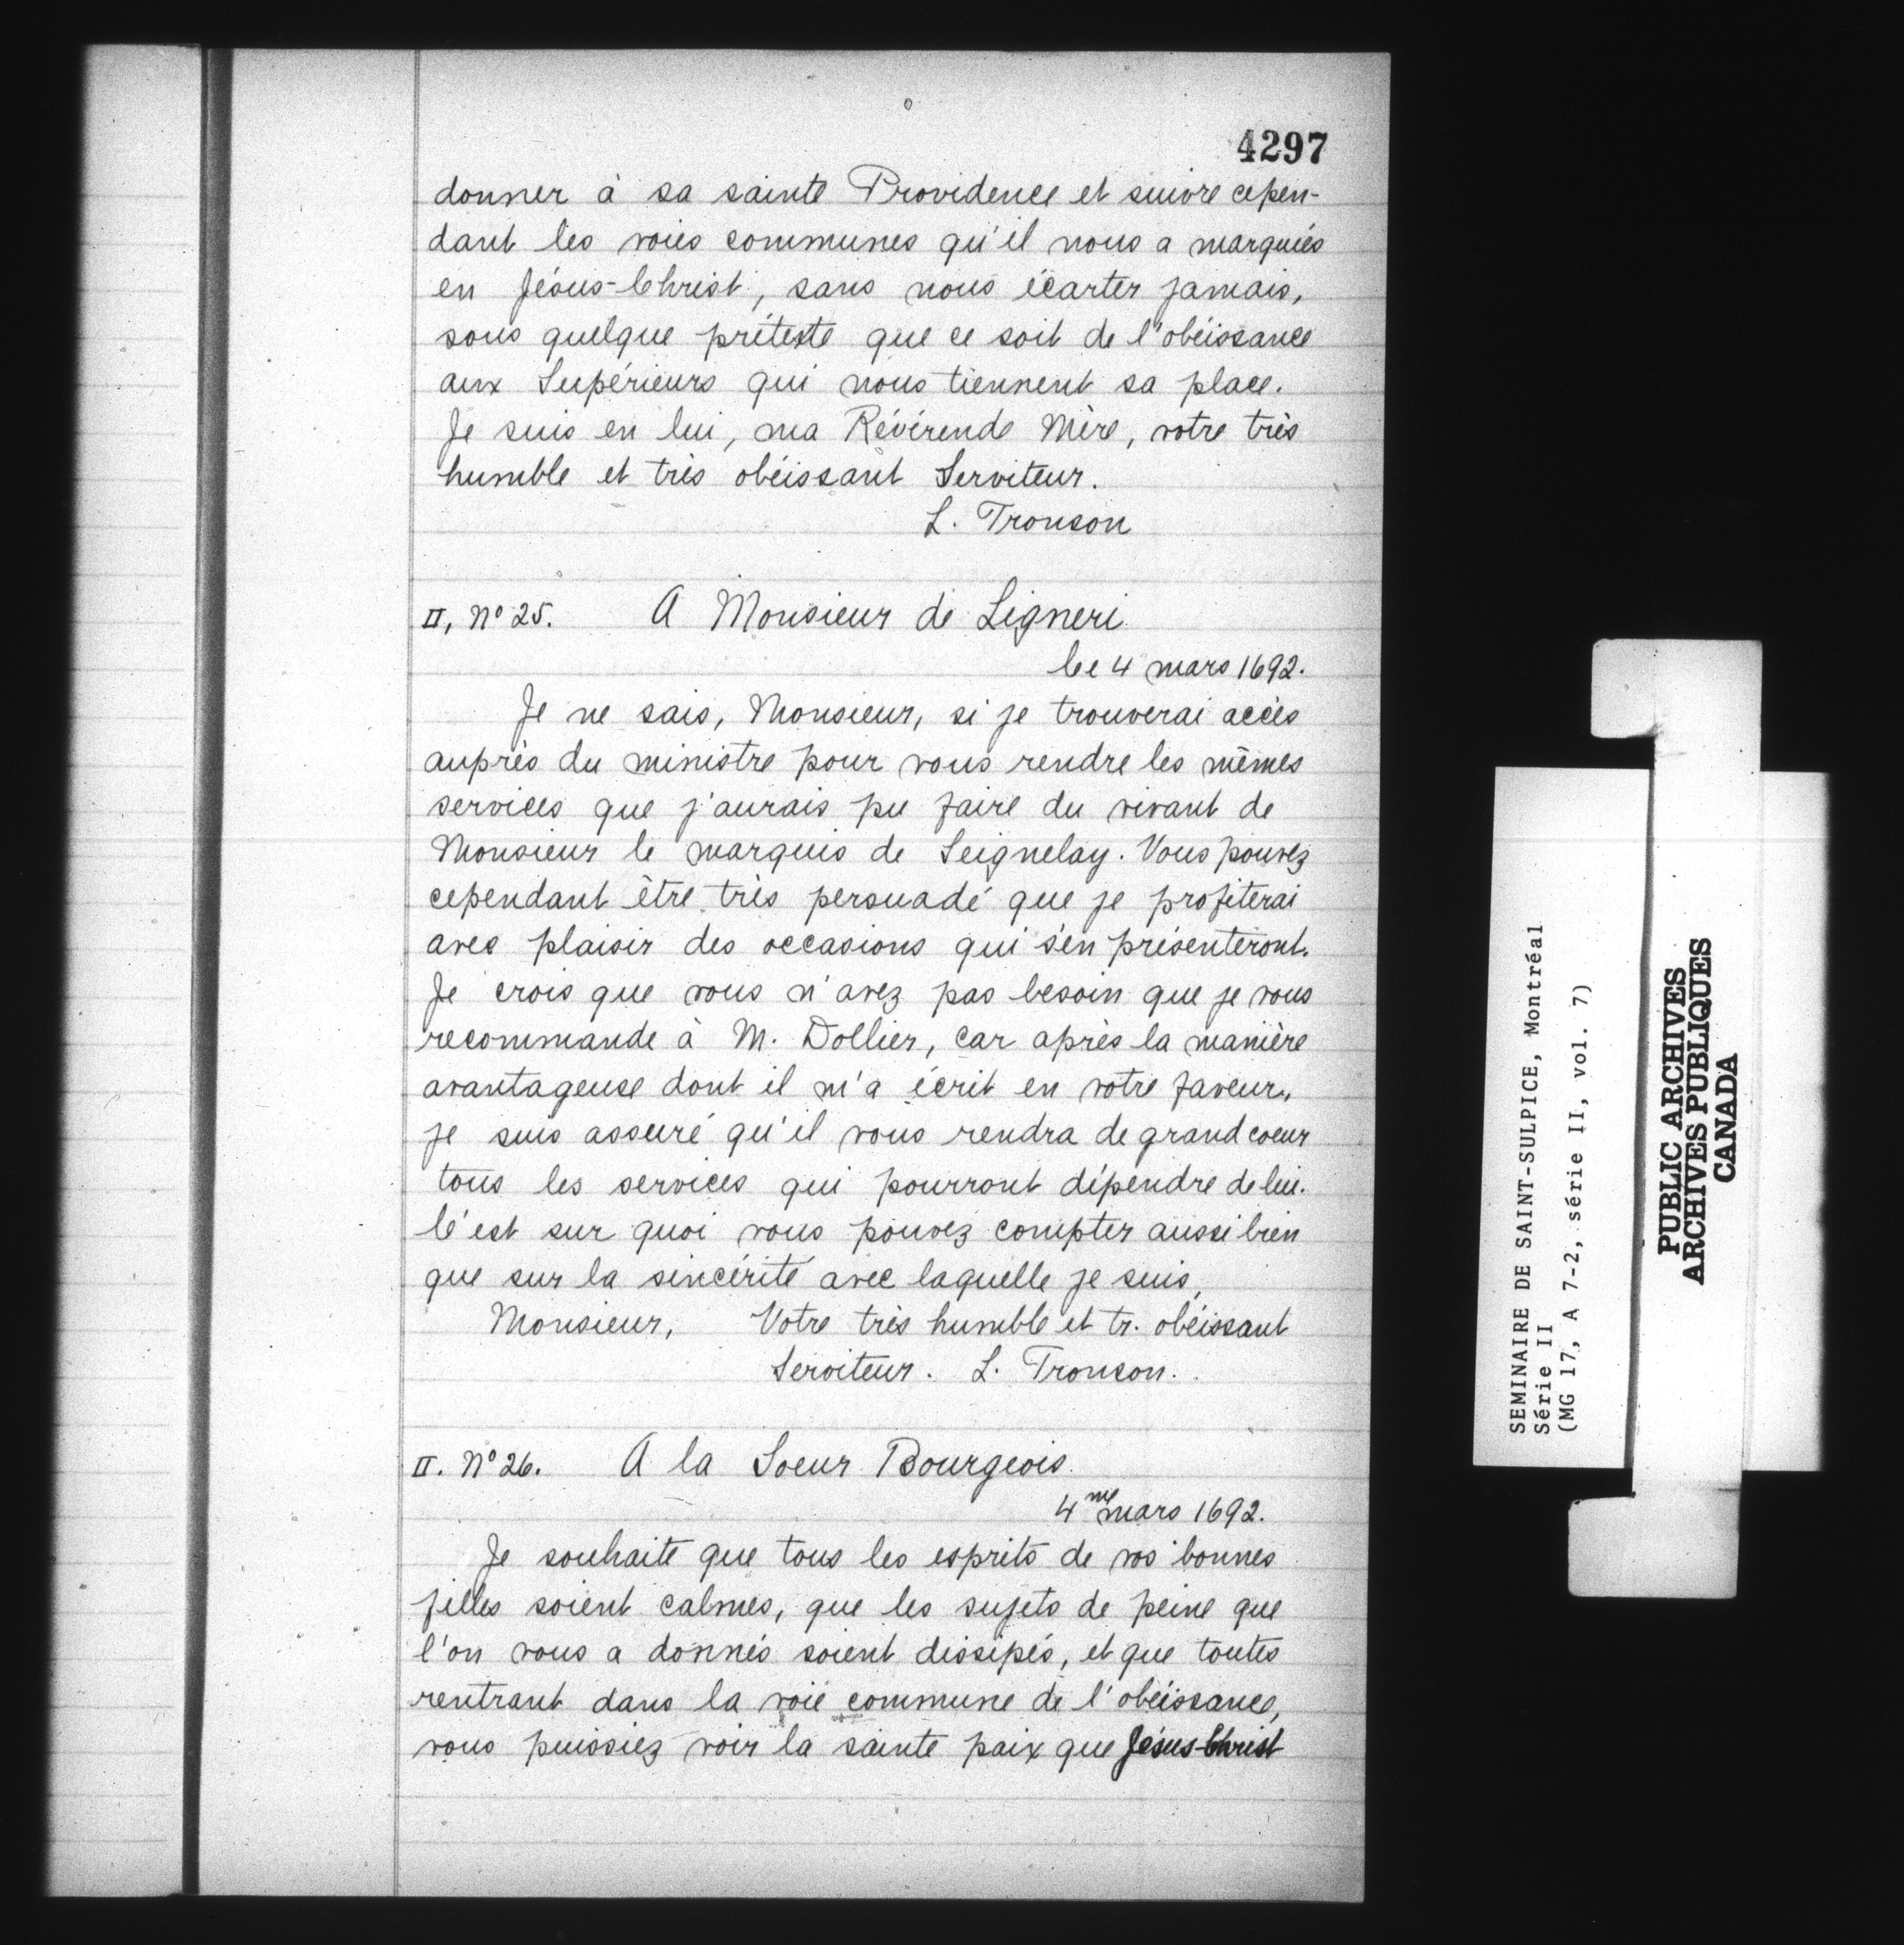 4297
donner à sa sainte Providence et suivre cepen-
dant les voies communes qu'il nous a marquées
en Jésus-Christ, sans nous écarter jamais,
sous quelque prétexte que ce soit de l'obéissance
aux Supérieurs qui nous tiennent sa place.
Je suis en lui, ma Révérende Mère, votre très
humble et très obéissant Serviteur.
L. Tronson
II, No 25. A Monsieur de Ligneri
Ce 4 mars 1692.
Je ne sais, Monsieur, si je trouverai accès
auprès du ministre pour vous rendre les mêmes
services que j'aurais pu faire du vivant de
Monsieur le marquis de Seignelay. Vous pouvez
cependant être très persuadé que je profiterai
avec plaisir des occasions qui s'en présenteront.
Je crois que vous n'avez pas besoin que je vous
recommande à M. Dollier, car après la manière
avantageuse dont il m'a écrit en votre faveur,
je suis assuré qu'il vous rendra de grand coeur
tous les services qui pourront dépendre de lui.
C'est sur quoi vous pouvez compter aussi bien
que sur la sincérité avec laquelle je suis,
Monsieur, Votre très humble et tr. obéissant
Serviteur. L. Tronson.
II. No 26. A la Soeur Bourgeois.
4me mars 1692.
Je souhaite que tous les esprits de vos bonnes
filles soient calmes, que les sujets de peine que
l'on vous a donnés soient dissipés, et que toutes
rentrant dans la voie commune de l'obéissance,
vous puissiez voir la sainte paix que Jésus-Christ
SEMINAIRE DE SAINT-SULPICE, Montréal
Série II
(MG 17, A 7-2, série II, vol. 7)
PUBLIC ARCHIVES
ARCHIVES PUBLIQUES
CANADA